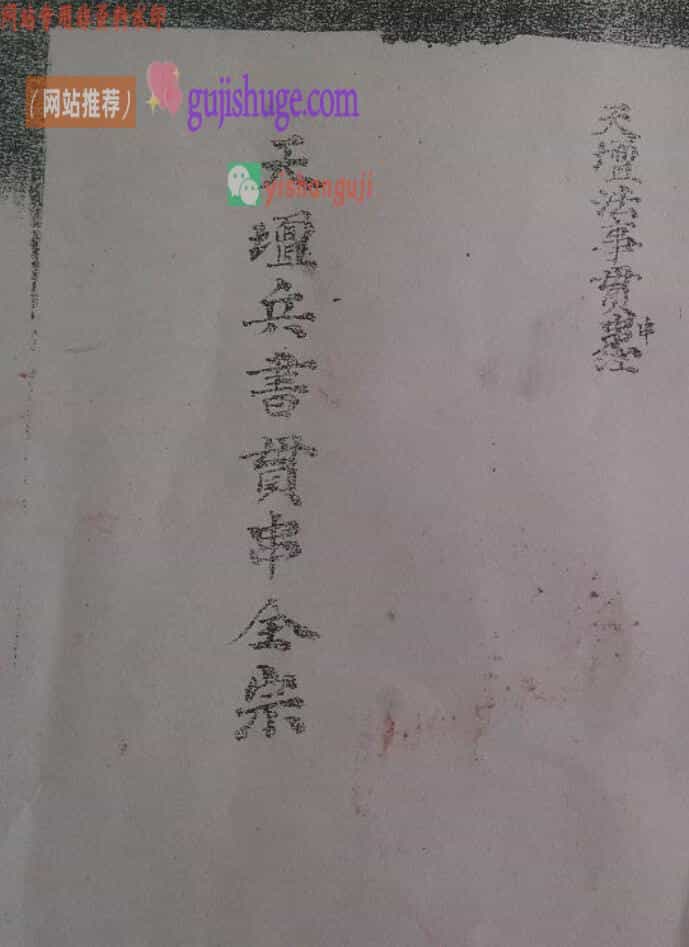 网站专用
（网站推荐）
gujishuge.com
yishanguji
天壇法事貫串
天壇兵書貫串全宗